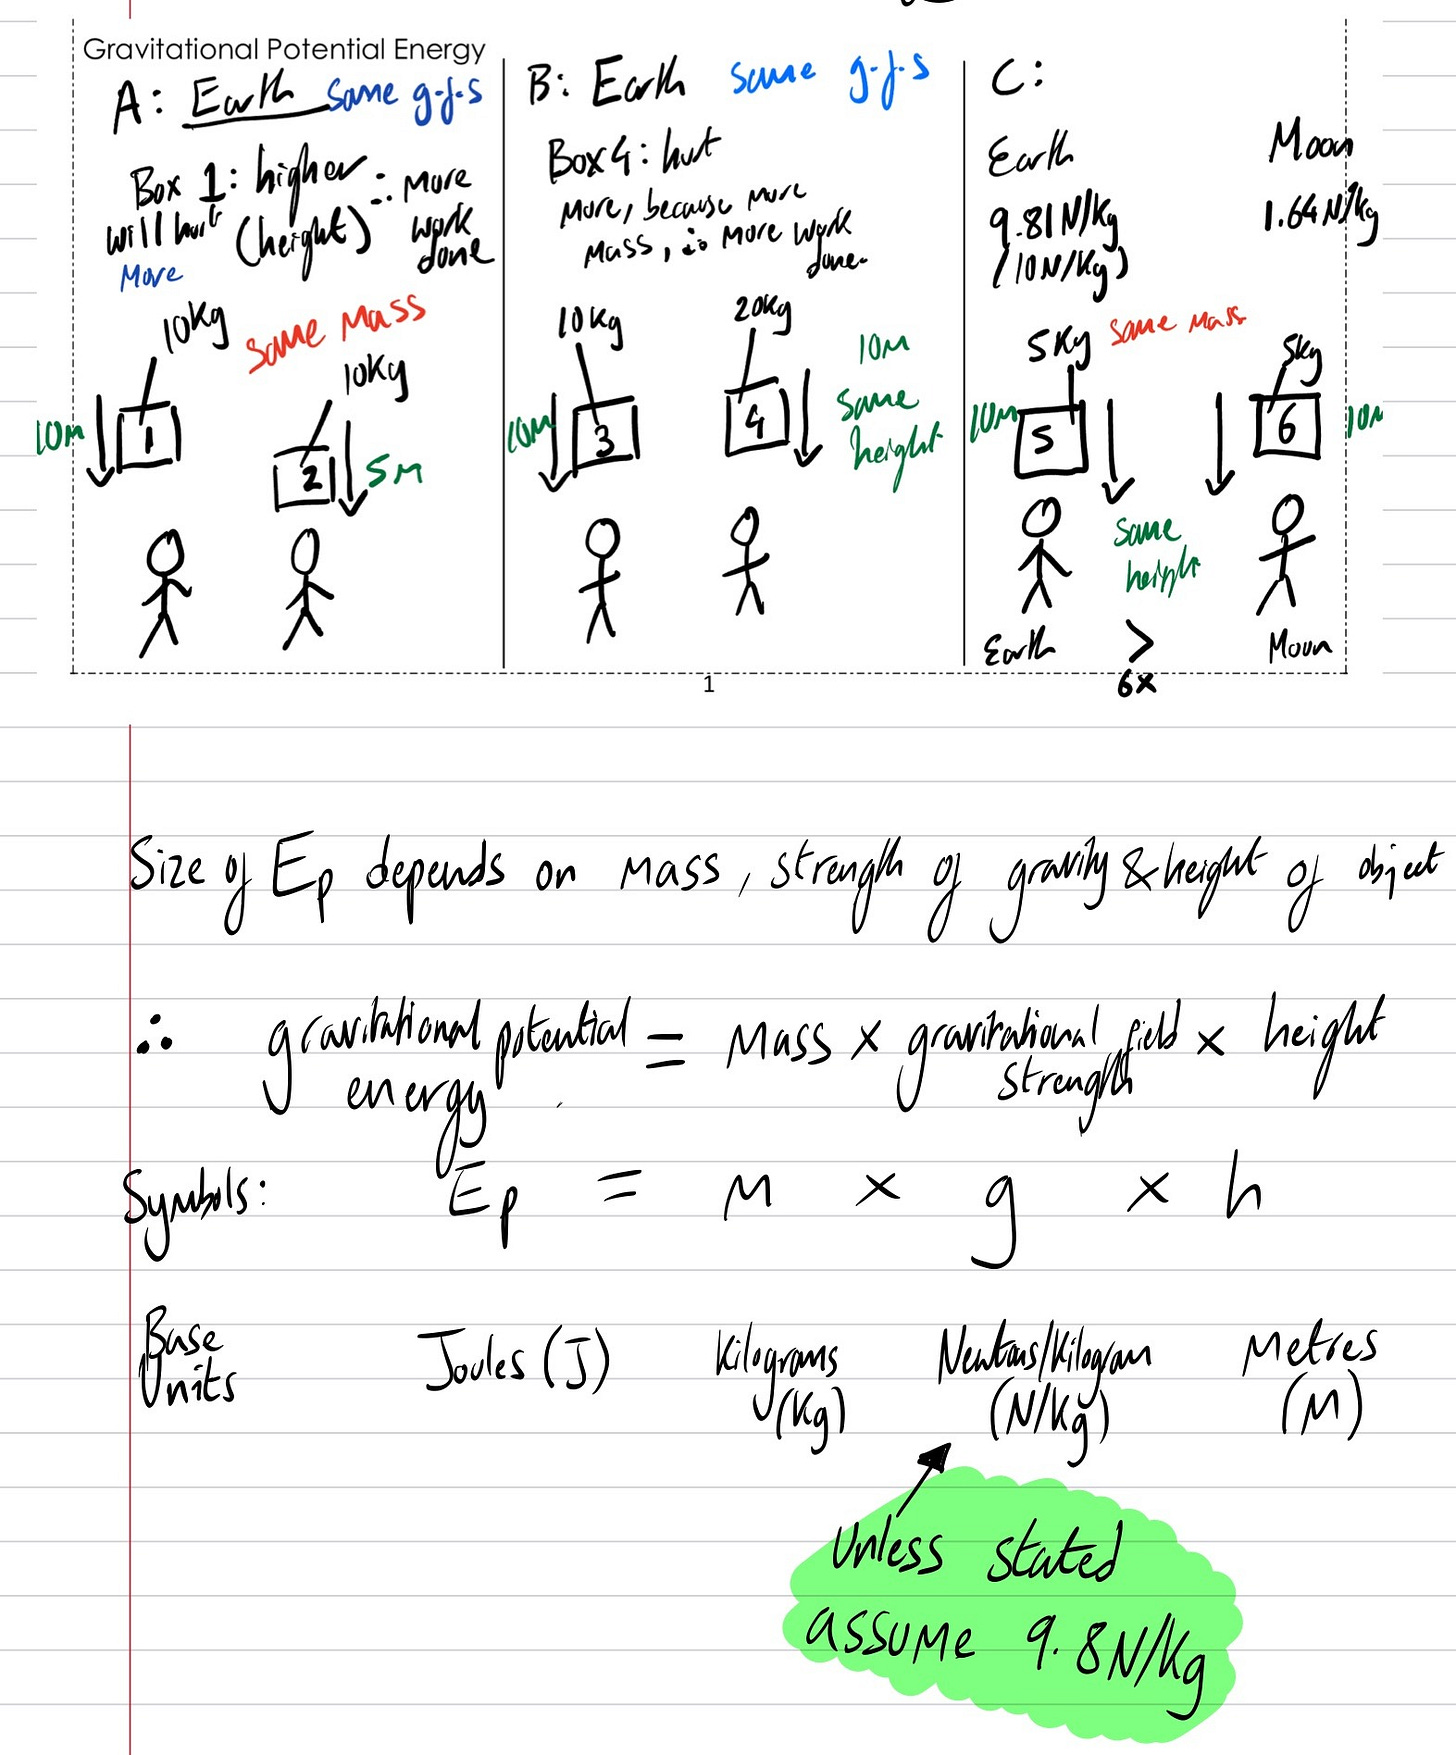 Gravitational Potential Energy
A: Earth same g.f.s
Box 1: higher ∴ More
will hurt (height) work
More done
10Kg same Mass
10Kg
10M 1
2 5M
B: Earth same g.f.s
Box 4: hurt
More, because more
Mass, ∴ More work
done.
10Kg 20Kg
10M
same
height
10M 3 4
C:
Earth Moon
9.81N/Kg 1.64N/Kg
(10N/Kg)
5Kg same mass 5Kg
10M 5 6 10M
same
height
Earth > Moon
6x
1
Size of Ep depends on Mass, strength of gravity & height of object
∴ gravitational potential = Mass x gravitational field x height
energy strength
Symbols: Ep = M x g x h
Base Joules (J) Kilograms Newtons/Kilogram Metres
Units (Kg) (N/Kg) (M)
Unless stated
assume 9.8N/Kg